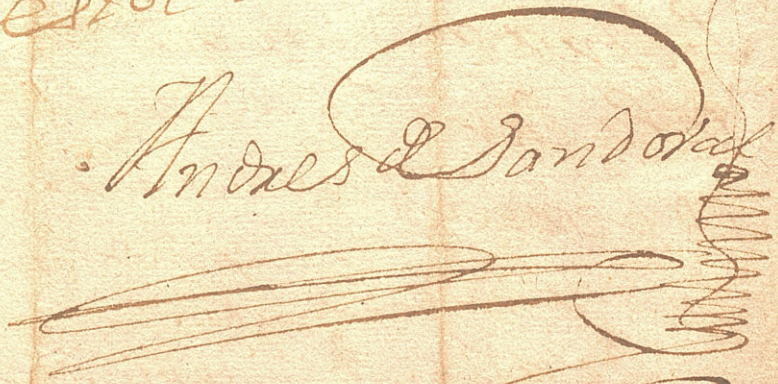 Andres de Sandoval